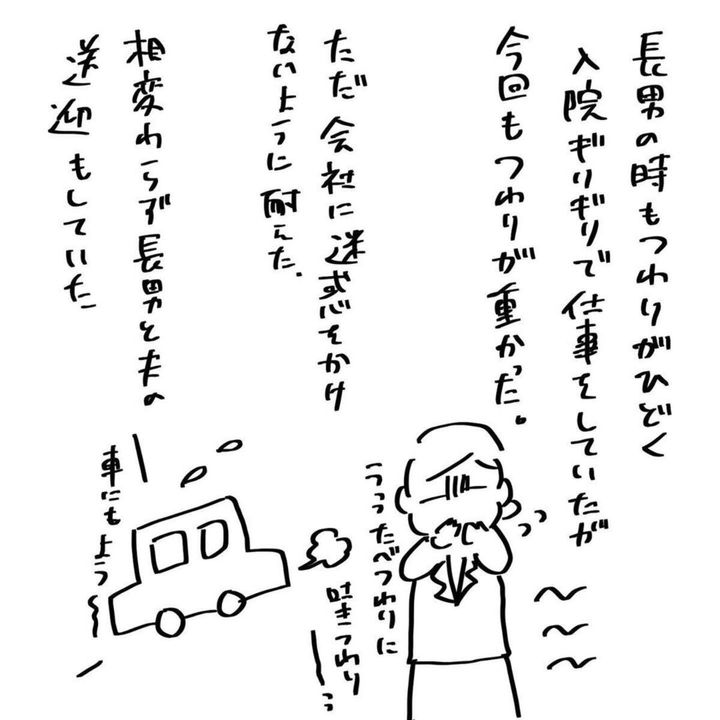 長男の時もつわりがひどく
入院ぎりぎりで仕事をしていたが
今回もつわりが重かった。
ただ会社に迷惑をかけ
ないように耐えた.
相変わらず長男と夫の
送迎もしていた
うっうったべつわりに
吐きつわり
車にもよう〜